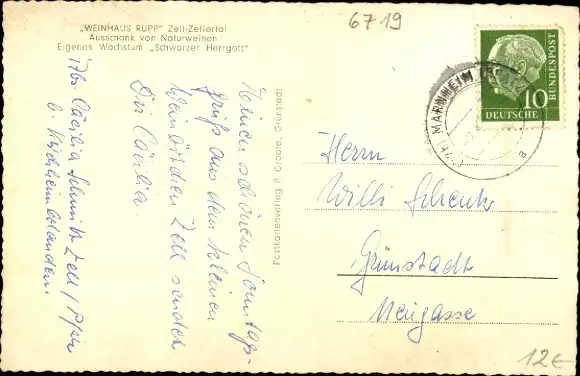 „WEINHAUS RUPP" Zell-Zellertal
Ausschank von Naturweinen
Eigenes Wachstum „Schwarzer Herrgott"
6719
Abs. Cäcilia Schmitt Zell / Pfalz
b. Kirchheimbolanden.
Meinen schönen Sonntags-
gruß aus dem kleinen
Weinörtchen Zell sendet
Dir Cäcilia.
Postkartenverlag P. Grooze, Grünstadt
MANNHEIM
a
10
DEUTSCHE
BUNDESPOST
Herrn
Willi Schenk
Grünstadt
Neugasse
12€